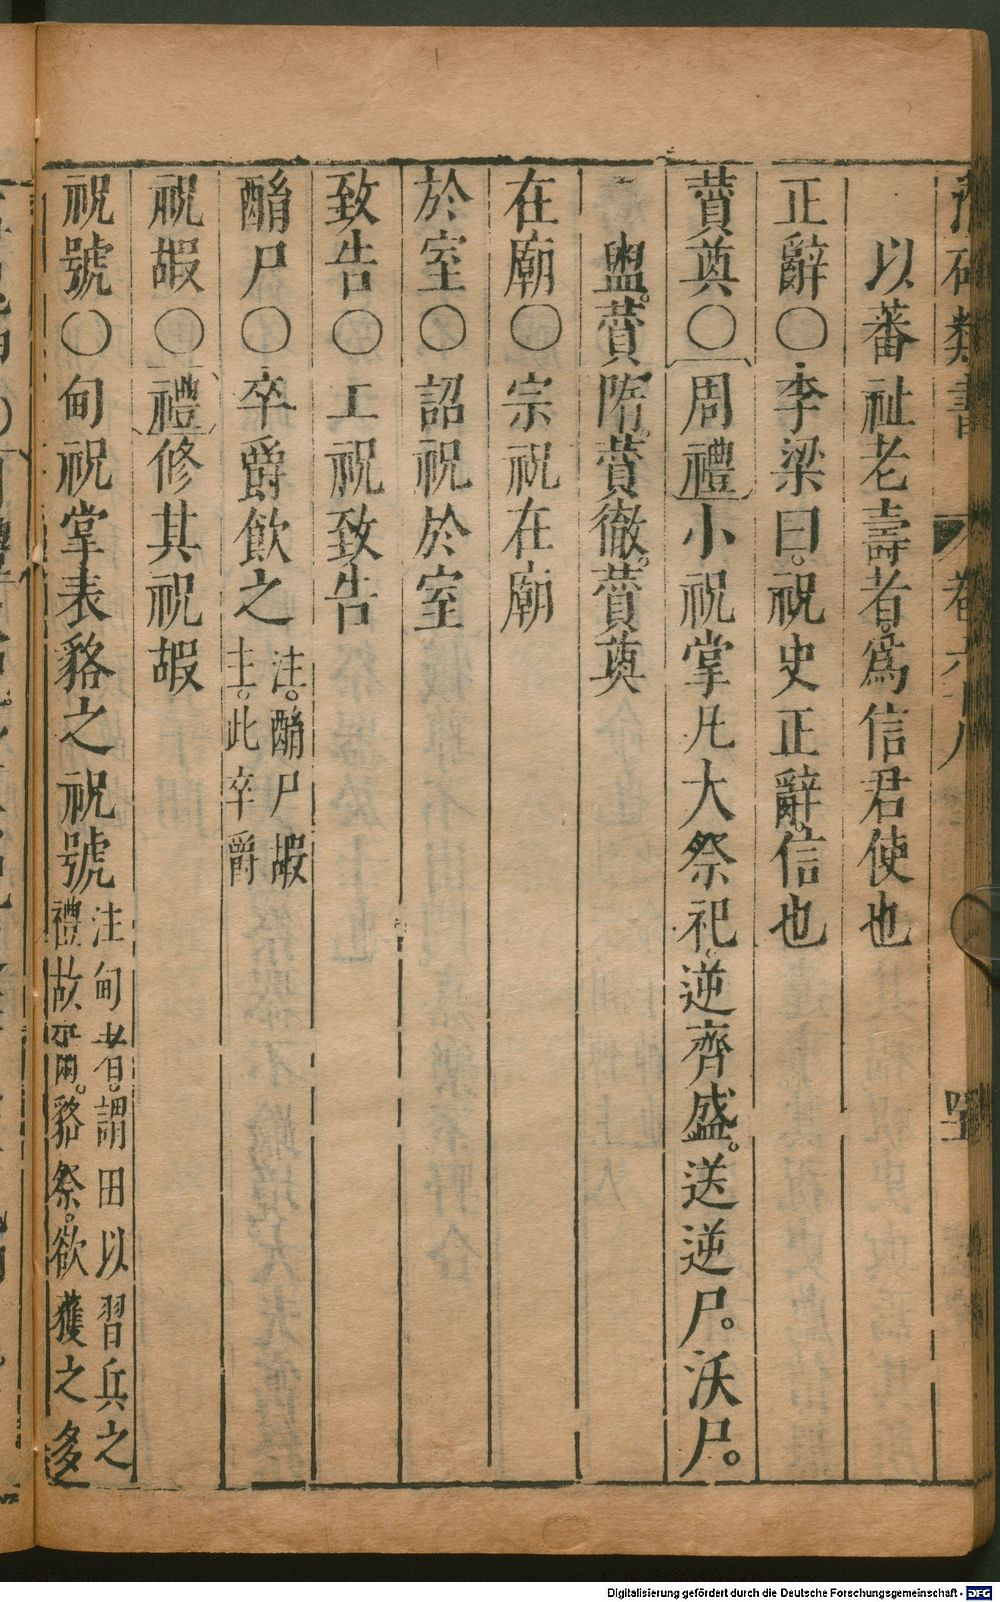 類書 卷六十八
以蕃祉老壽者。爲信君使也
正辭〇李梁曰。祝史正辭。信也
贊奠〇周禮小祝掌凡大祭祀。逆齊盛。送逆尸。沃尸。
盥。贊隋。贊徹。贊奠
在廟〇宗祝在廟
於室〇詔祝於室
致告〇工祝致告
酳尸〇卒爵飲之
注。酳尸嘏
主。此卒爵
祝嘏〇禮修其祝嘏
祝號〇甸祝掌表貉之祝號
注甸者。謂田以習兵之
禮故。貉祭。欲獲之多
Digitalisierung gefördert durch die Deutsche Forschungsgemeinschaft - DFG